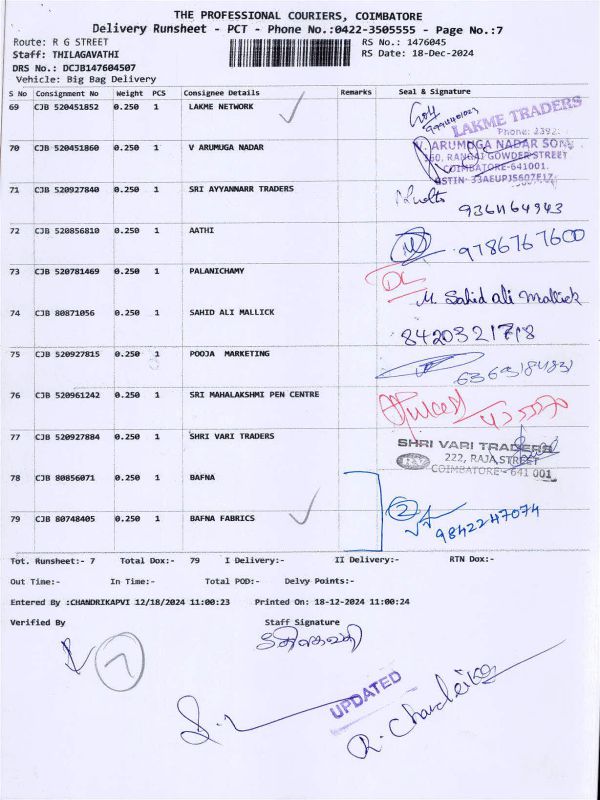 THE PROFESSIONAL COURIERS, COIMBATORE
Delivery Runsheet - PCT - Phone No.:0422-3505555 - Page No.:7
Route: R G STREET RS No.: 1476045
Staff: THILAGAVATHI RS Date: 18-Dec-2024
DRS No.: DCJB147604507
Vehicle: Big Bag Delivery
S No Consignment No Weight PCS Consignee Details Remarks Seal & Signature
69 CJB 520451852 0.250 1 LAKME NETWORK
LAKME TRADERS
Phone: 2392
70 CJB 520451860 0.250 1 V ARUMUGA NADAR
V. ARUMUGA NADAR SON
RANGAI GOWDER STREET
COIMBATORE-641001.
71 CJB 520927840 0.250 1 SRI AYYANNARR TRADERS
9361164943
72 CJB 520856810 0.250 1 AATHI 9786767600
73 CJB 520781469 0.250 1 PALANICHAMY
M. Sahid Ali Mallick
74 CJB 80871056 0.250 1 SAHID ALI MALLICK
8420321718
75 CJB 520927815 0.250 1 POOJA MARKETING
76 CJB 520961242 0.250 1 SRI MAHALAKSHMI PEN CENTRE
77 CJB 520927884 0.250 1 SHRI VARI TRADERS
SHRI VARI TRADERS
222, RAJA STREET
COIMBATORE - 641 001
78 CJB 80856071 0.250 1 BAFNA
79 CJB 80748405 0.250 1 BAFNA FABRICS 2 9842247074
Tot. Runsheet:- 7 Total Dox:- 79 I Delivery:- II Delivery:- RTN Dox:-
Out Time:- In Time:- Total POD:- Delvy Points:-
Entered By :CHANDRIKAPVI 12/18/2024 11:00:23 Printed On: 18-12-2024 11:00:24
Verified By Staff Signature
7
UPDATED
R. Chandrika